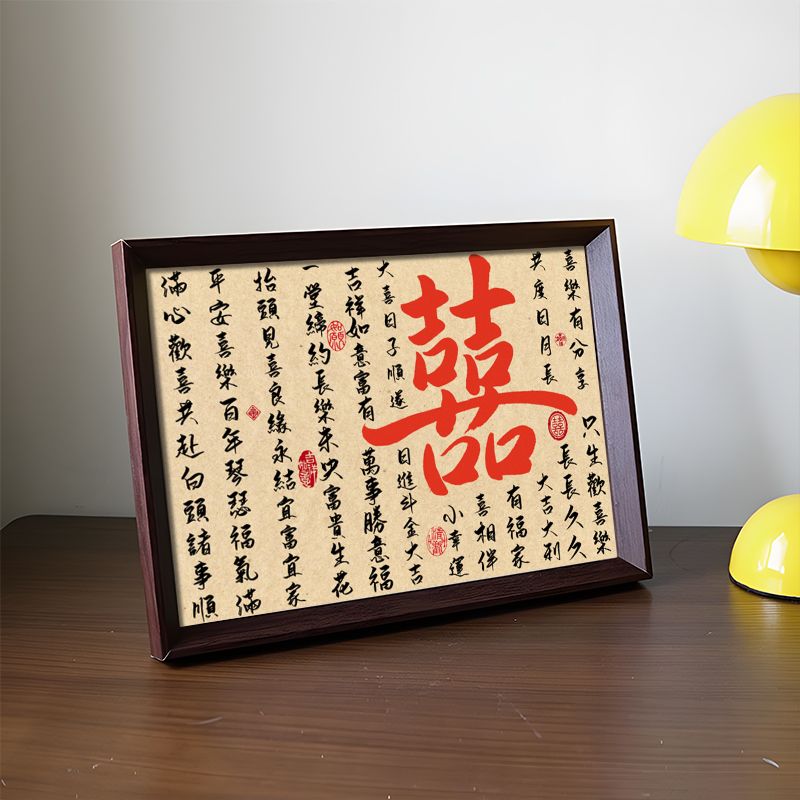 喜樂有分享
共度日月長
只生歡喜樂
長長久久
大吉大利
有福家
喜相伴
小幸運
囍
大喜日子順遂
日進斗金大吉
吉祥如意富有
萬事勝意福
一堂締約長樂未央富貴生花
抬頭見喜良緣永結宜富宜家
平安喜樂百年琴瑟福氣滿
滿心歡喜共赴白頭諸事順